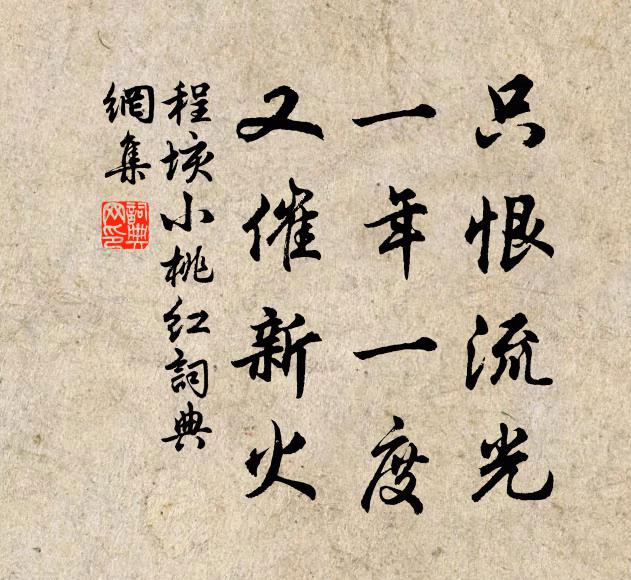 只恨流光
一年一度
又催新火
程垓小桃红詞典
網集
詞典
网印